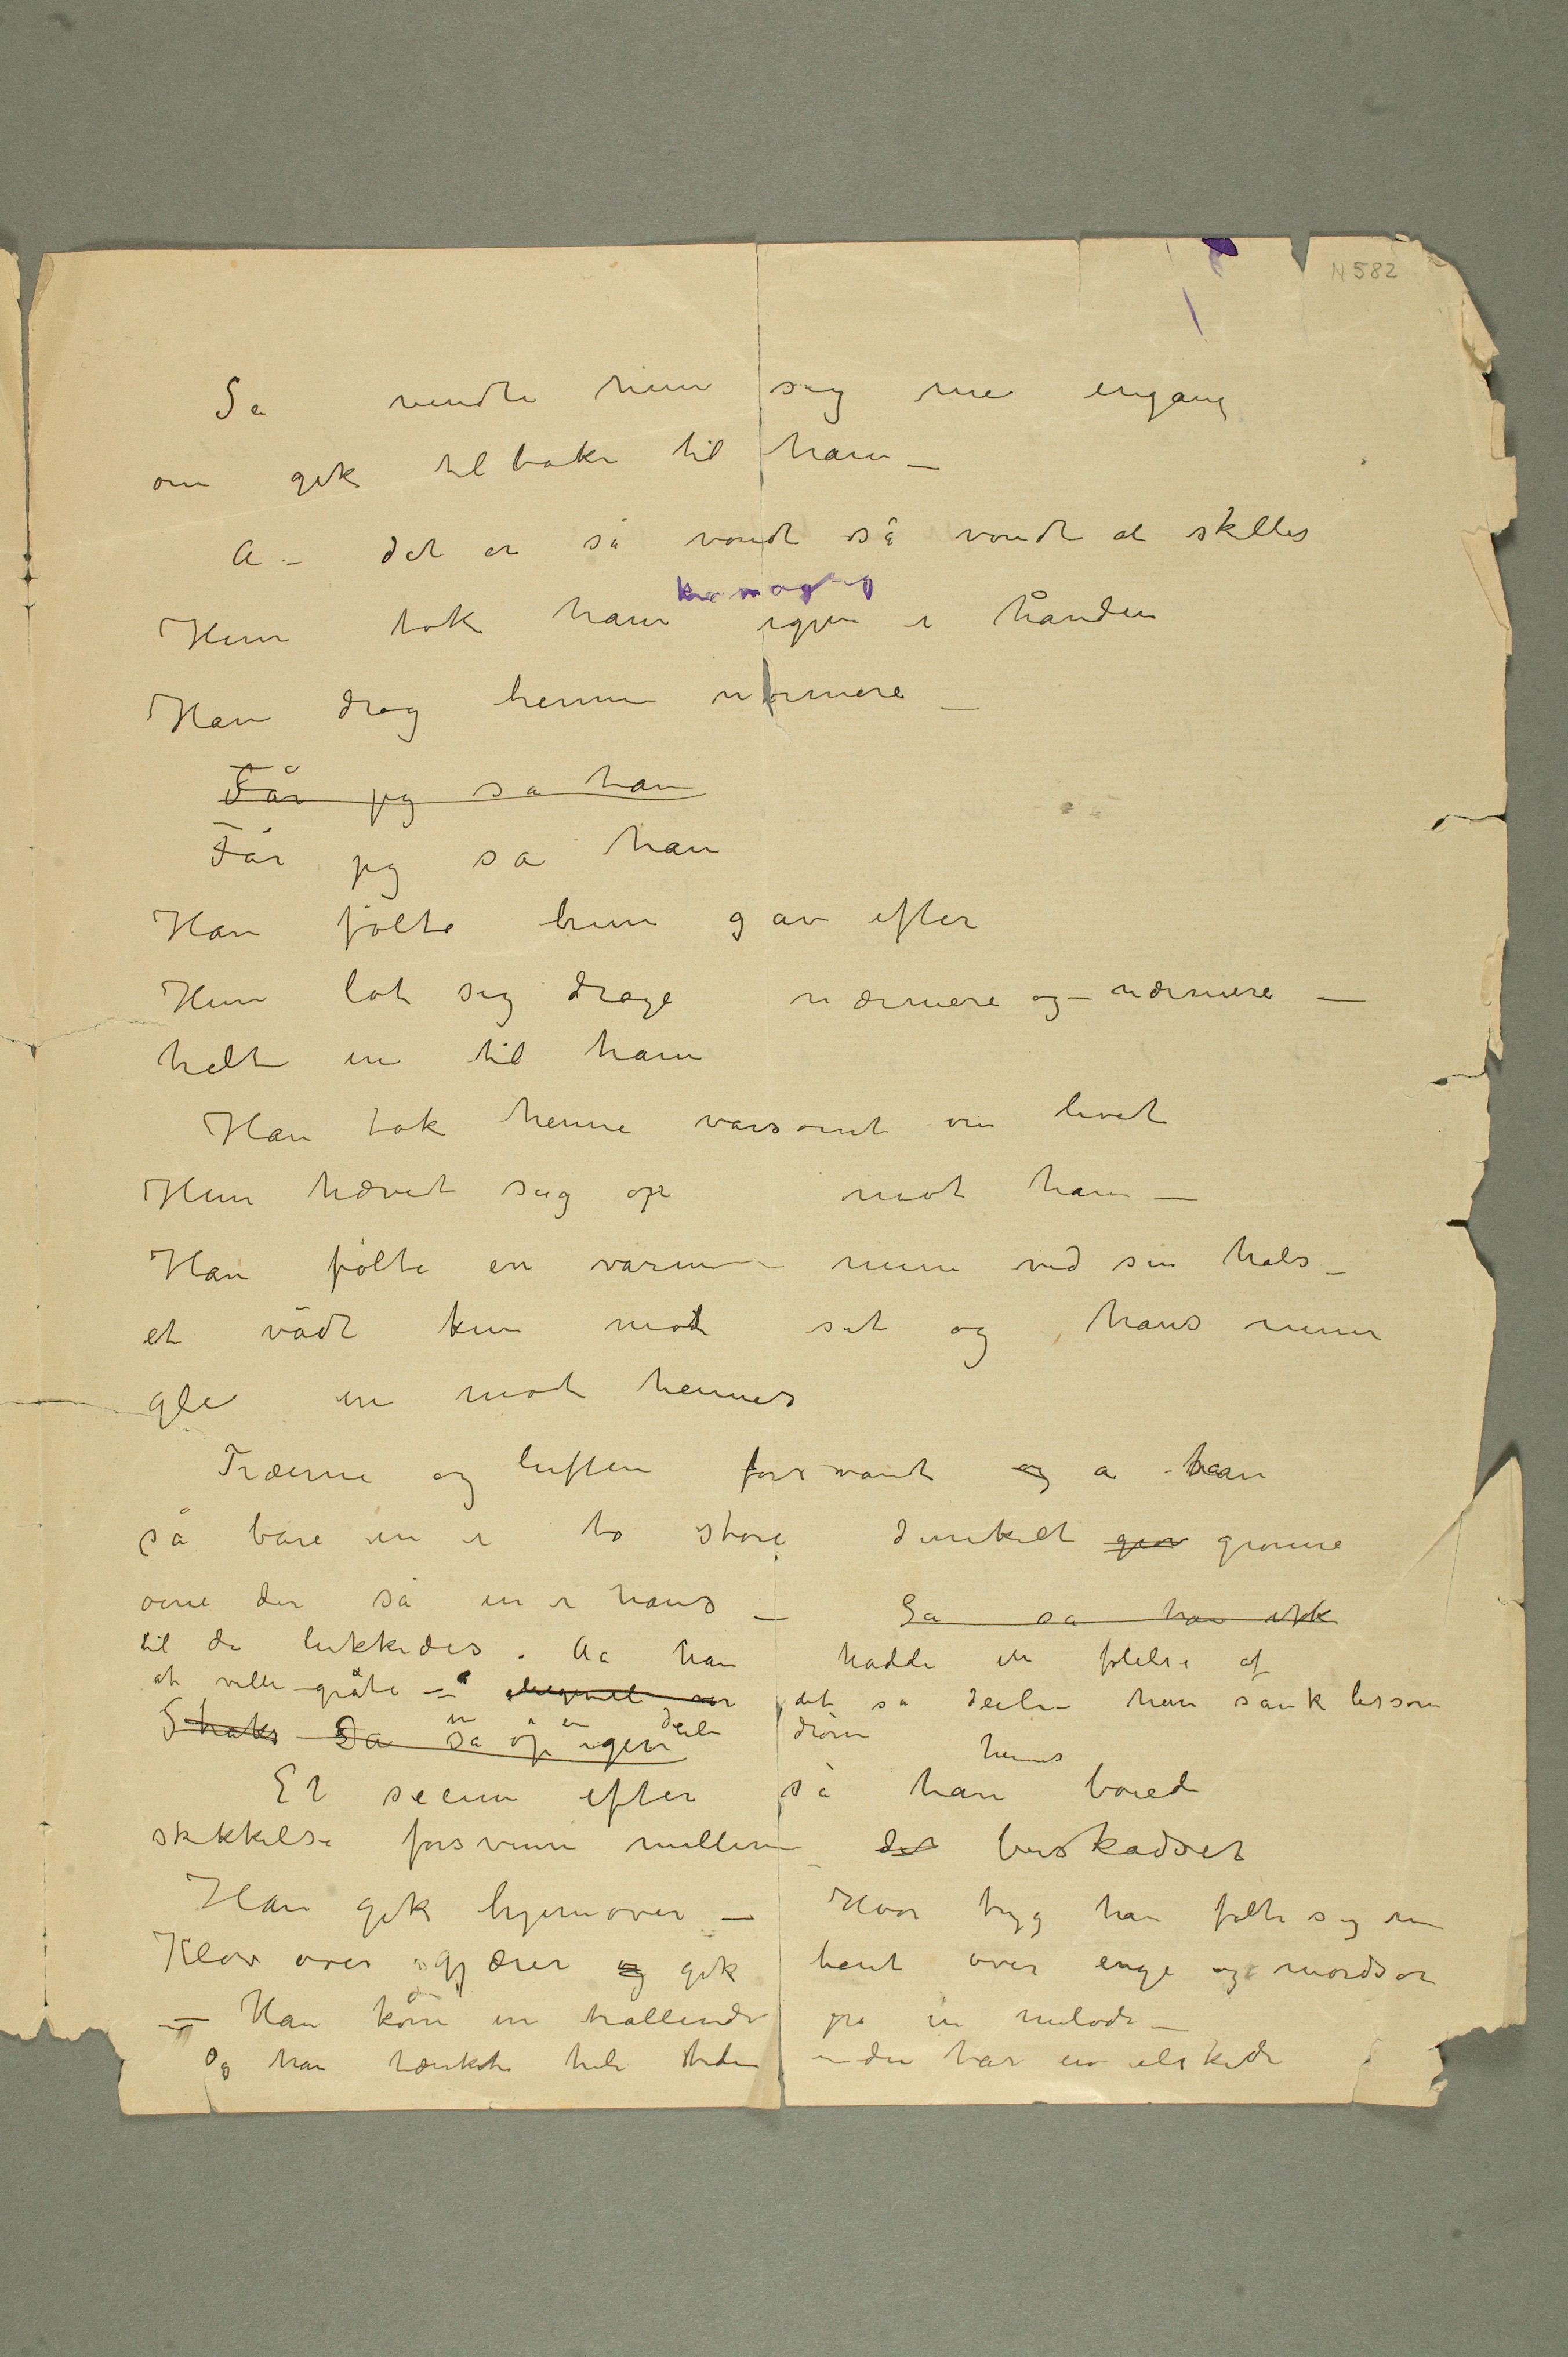 N 582
Så vendte hun sig me engang
om gik tilbake til ham —
A – det er så vondt så vondt at skilles
Hun tok ham igjen i hånden
Han drog henne nærmere —
Får jeg sa han
Får jeg sa han
Han følte hun gav efter
Hun lot sig drage nærmere og – nærmere —
helt in til ham
Han tok henne varsomt om livet
Hun hævet sig op mot ham —
Han følte en varm – munn ved sin hals –
et vådt kinn mot sit og hans munn
gle in mot hennes
Træerne og luften forsvandt og a han
så bare in i to store dunkelt grønne
øine der så in i hans —
til de lukkedes. Aa han hadde en følelse af
at ville gråte – det så deili – han sank lissom
in i en deili drøm
Straks Da så op igen
Et secun efter så han hennes boied
skikkelse forsvinne mellem det buskadset
Han gik hjemover — Hvor tryg han følte sig
Kløv over gjærer og gik bent over enge og
— Han kom in trallende på en melodi –
Og han tænkte hele tiden – du har en elskede